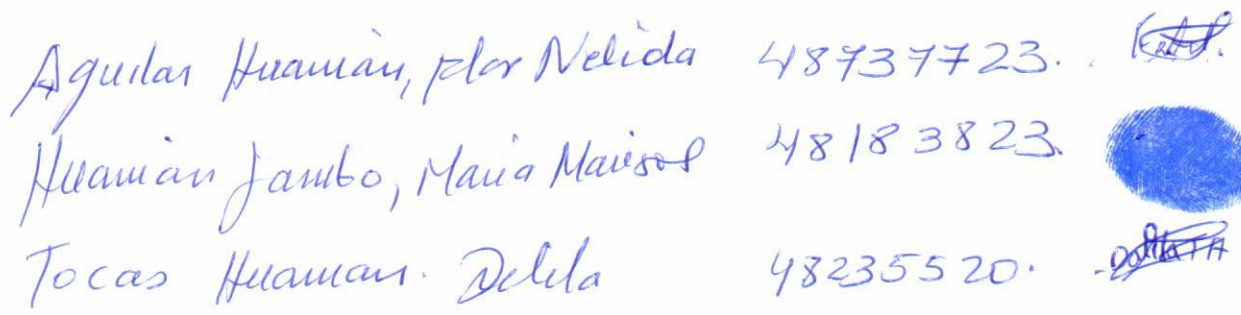 Aguilar Huamán, Flor Nelida 48737723.
Huamán Jambo, Maria Marisol 48183823.
Tocas Huaman. Delila 48235520.